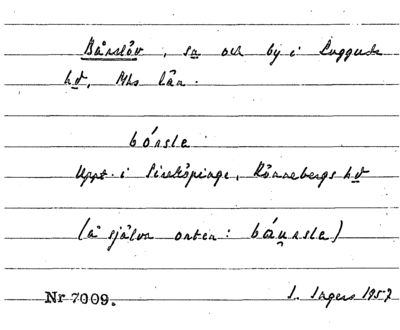 Bårslöv, sn och by i Luggude
hd, Mhs län.
bórsla
Uppt. i Sireköpinge, Rönnebergs hd
(å själva orten: báu̯rsla)
Nr 7009. I. Ingers 1957